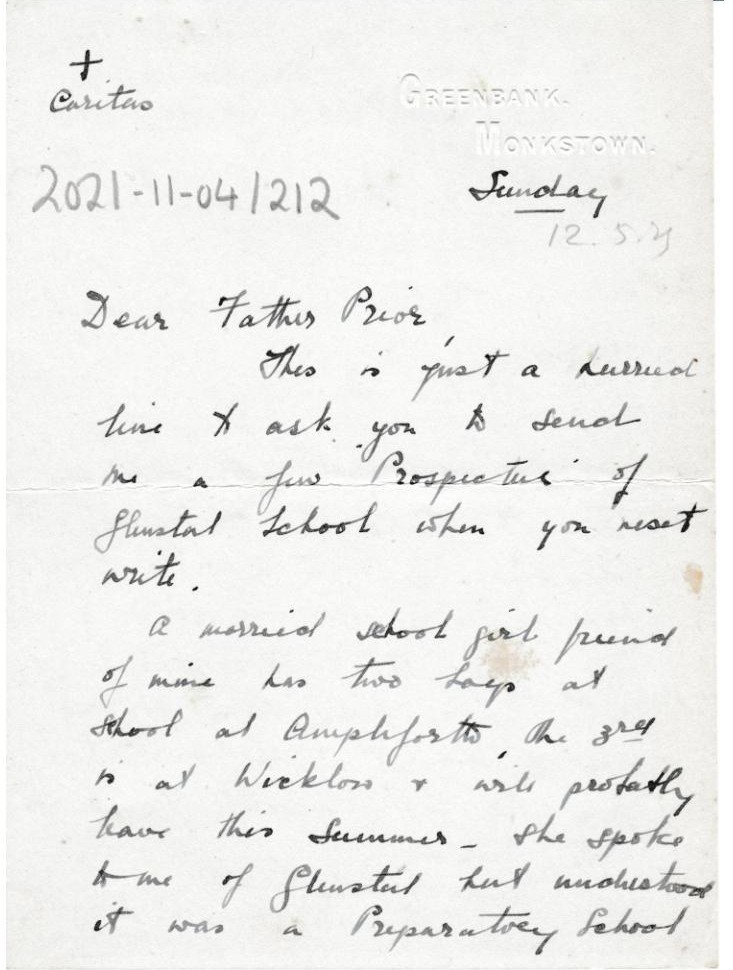 +
Caritas
GREENBANK.
MONKSTOWN.
2021-11-04/212
Sunday
12.5.
Dear Father Prior,
This is just a hurried
line to ask you to send
me a few Prospectus of
Glenstal School when you next
write.
A married school girl friend
of mine has two boys at
school at Ampleforth, the 3rd
is at Wicklow & will probably
leave this Summer _ She spoke
to me of Glenstal but understood
it was a Preparatory School